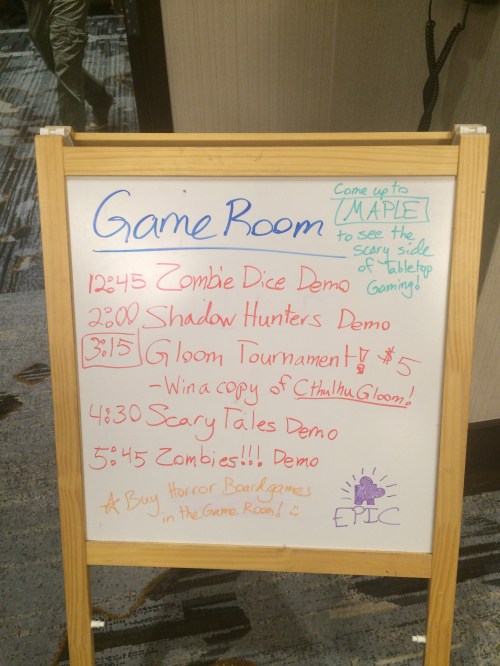 Game Room
Come up to
MAPLE
to see the
scary side
of Tabletop
Gaming!
12:45 Zombie Dice Demo
2:00 Shadow Hunters Demo
3:15 Gloom Tournament! $5
- Win a copy of Cthulhu Gloom!
4:30 Scary Tales Demo
5:45 Zombies!!! Demo
☆ Buy Horror Boardgames
in the Game Room! :)
EPIC